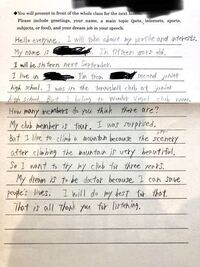 ◆You will present in front of the whole class for the next
Please include greetings, your name, a main topic (pets, interests, sports,
subjects, or food), and your dream job in your speech.
Hello everyone. I will talk about my profile and interests.
My name is I'm fifteen years old.
I will be sixteen next September.
I live in I'm from second junior
high school. I was in the tennisball club at junior
high school. But I belong to Wander Vogel club now.
How many members do you think there are?
My club member is four. I was surprised.
But I like to climb a mountain because the scenery
after climbing the mountain is very beautiful.
So I want to try my club for three years.
My dream is to be doctor because I can save
people's lives. I will do my best for that.
That is all Thank you for listening.